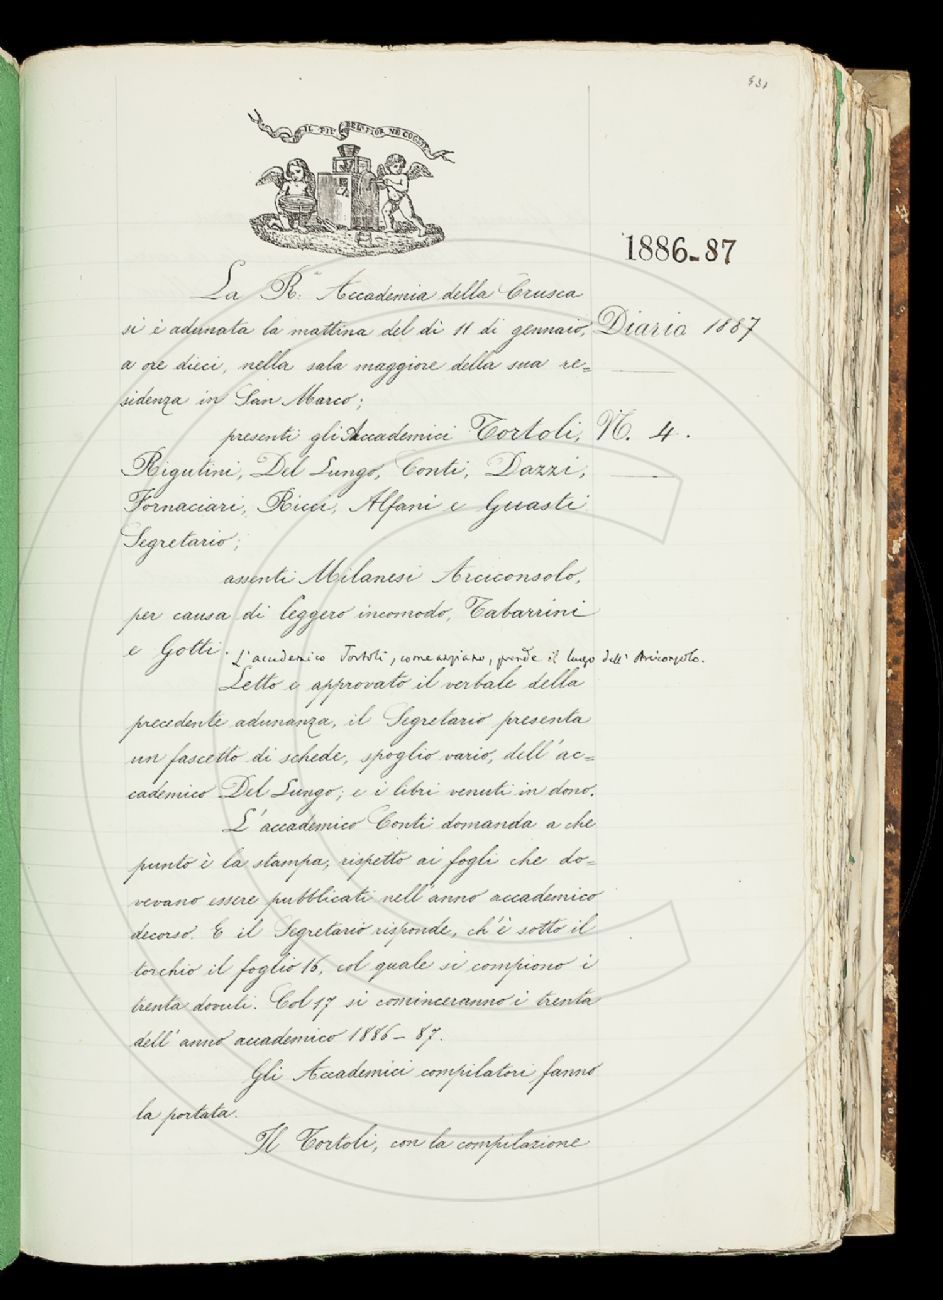 531
IL PIÙ BEL FIOR NE COGLIE
1886-87
La R.ª Accademia della Crusca
si è adunata la mattina del dì 11 di gennaio,
Diario 1887
a ore dieci, nella sala maggiore della sua re=
sidenza in San Marco;
presenti gli Accademici Tortoli,
N. 4.
Rigutini, Del Lungo, Conti, Dazzi,
Fornaciari, Ricci, Alfani e Guasti
Segretario;
assenti Milanesi Arciconsolo,
per causa di leggero incomodo, Tabarrini
e Gotti. L'accademico Tortoli, come anziano, prende il luogo dell'Arciconsolo.
Letto e approvato il verbale della
precedente adunanza, il Segretario presenta
un fascetto di schede, spoglio vario, dell'ac=
cademico Del Lungo; e i libri venuti in dono.
L'accademico Conti domanda a che
punto è la stampa, rispetto ai fogli che do=
vevano essere pubblicati nell'anno accademico
decorso. E il Segretario risponde, ch'è sotto il
torchio il foglio 16, col quale si compiono i
trenta dovuti. Col 17 si cominceranno i trenta
dell'anno accademico 1886-87.
Gli Accademici compilatori fanno
la portata.
Il Tortoli, con la compilazione